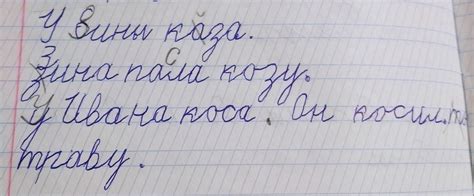 У Зины каза.
Зина пасла козу.
У Ивана коса. Он косил
траву.